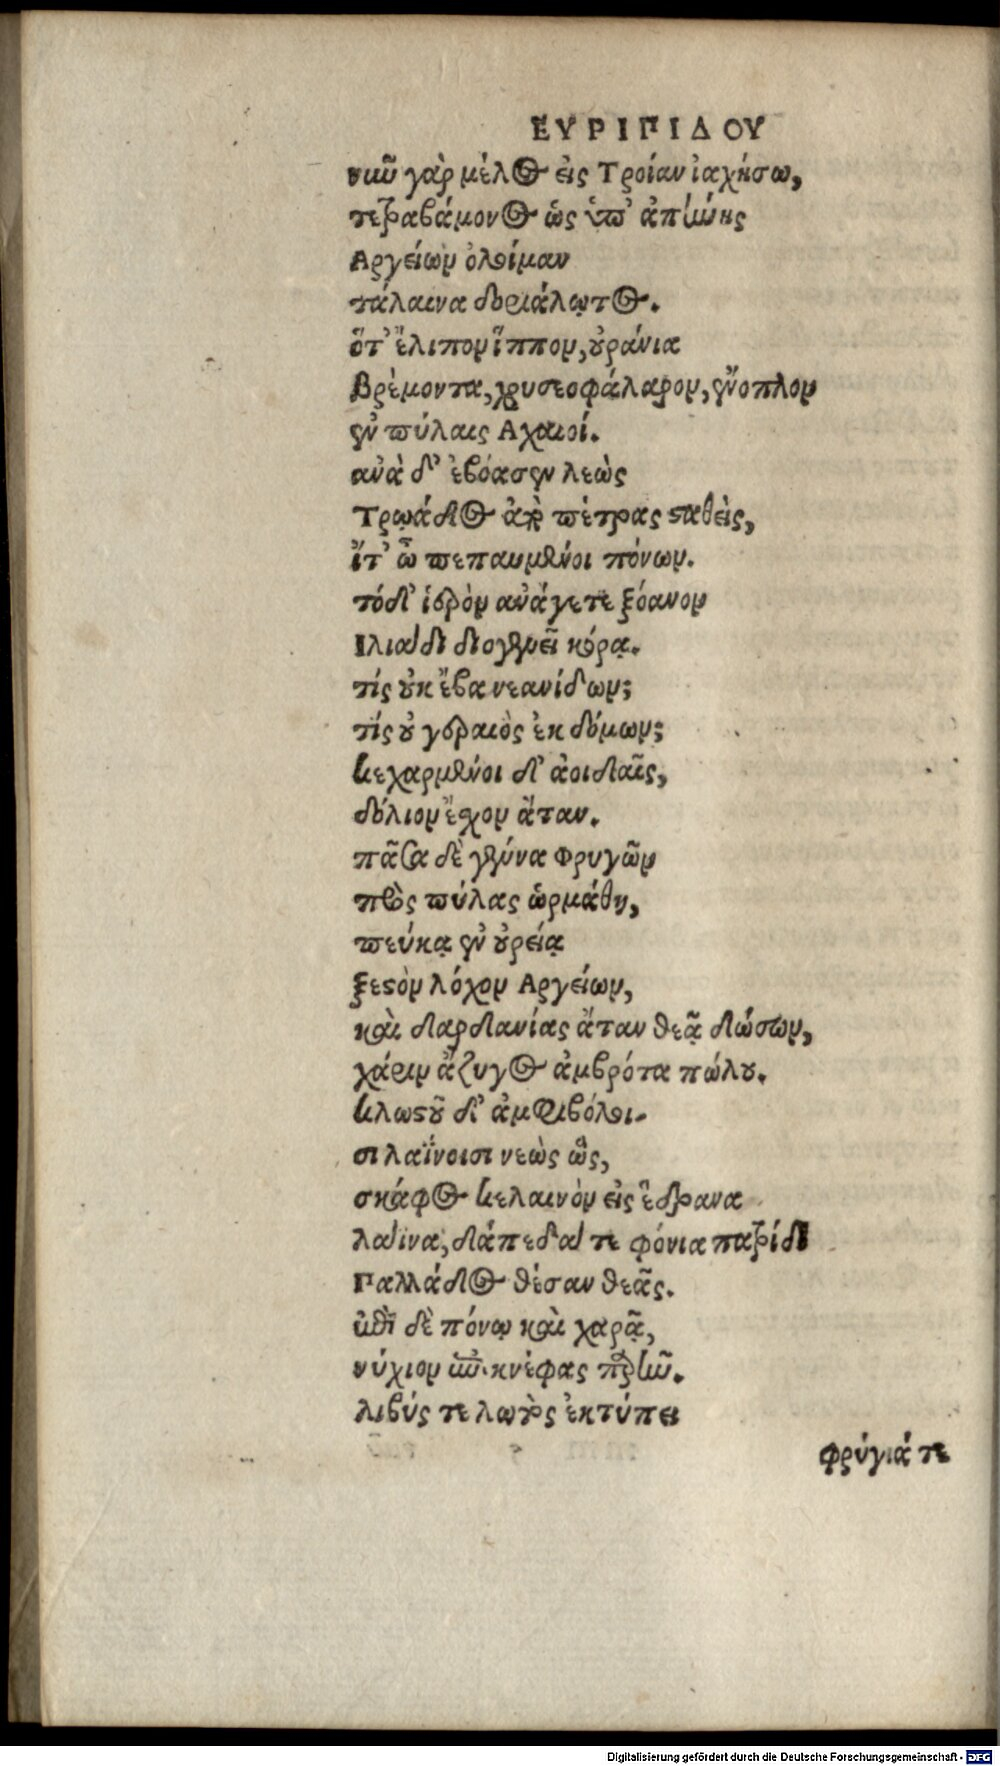 ΕΥΡΙΠΙΔΟΥ
νῦν γὰρ μέλος εἰς Τροίαν ἰαχήσω,
τετραβάμονος ὡς ὑπ' ἀπήνης
Αργείων ὀλοίμαν
τάλαινα δοριάλωτος.
ὅτ' ἔλιπον ἵππον, οὐράνια
Βρέμοντα, χρυσεοφάλαρον, ἔνοπλον
ἐν πύλαις Αχαιοί.
ἀνὰ δ' ἐβόασεν λεὼς
Τρῳάδος ἀπὸ πέτρας σταθεὶς,
ἴτ' ὦ πεπαυμένοι πόνων.
τόδ' ἱερὸν ἀνάγετε ξόανον
Ιλιάδι διογενεῖ κόρᾳ.
τίς οὐκ ἔβα νεανίδων;
τίς οὐ γεραιὸς ἐκ δόμων;
κεχαρμένοι δ' ἀοιδαῖς,
δόλιον ἔχον ἄταν.
πᾶσα δὲ γέννα Φρυγῶν
πρὸς πύλας ὡρμάθη,
πεύκᾳ ἐν οὐρείᾳ
ξεστὸν λόχον Αργείων,
καὶ δαρδανίας ἄταν θεᾷ δώσων,
χάριν ἄζυγος ἀμβρότα πώλου.
κλωστοῦ δ' ἀμφιβόλοι-
σι λαΐνοισι νεὼς ὣς,
σκάφος κελαινὸν εἰς ἕδρανα
λάϊνα, δάπεδά τε φόνια πατρίδι
Παλλάδος θέσαν θεᾶς.
ἐπὶ δὲ πόνῳ καὶ χαρᾷ,
νύχιον ἐπεὶ κνέφας παρῆν.
λιβύς τε λωτὸς ἐκτύπει
φρύγιά τε
Digitalisierung gefördert durch die Deutsche Forschungsgemeinschaft - DFG